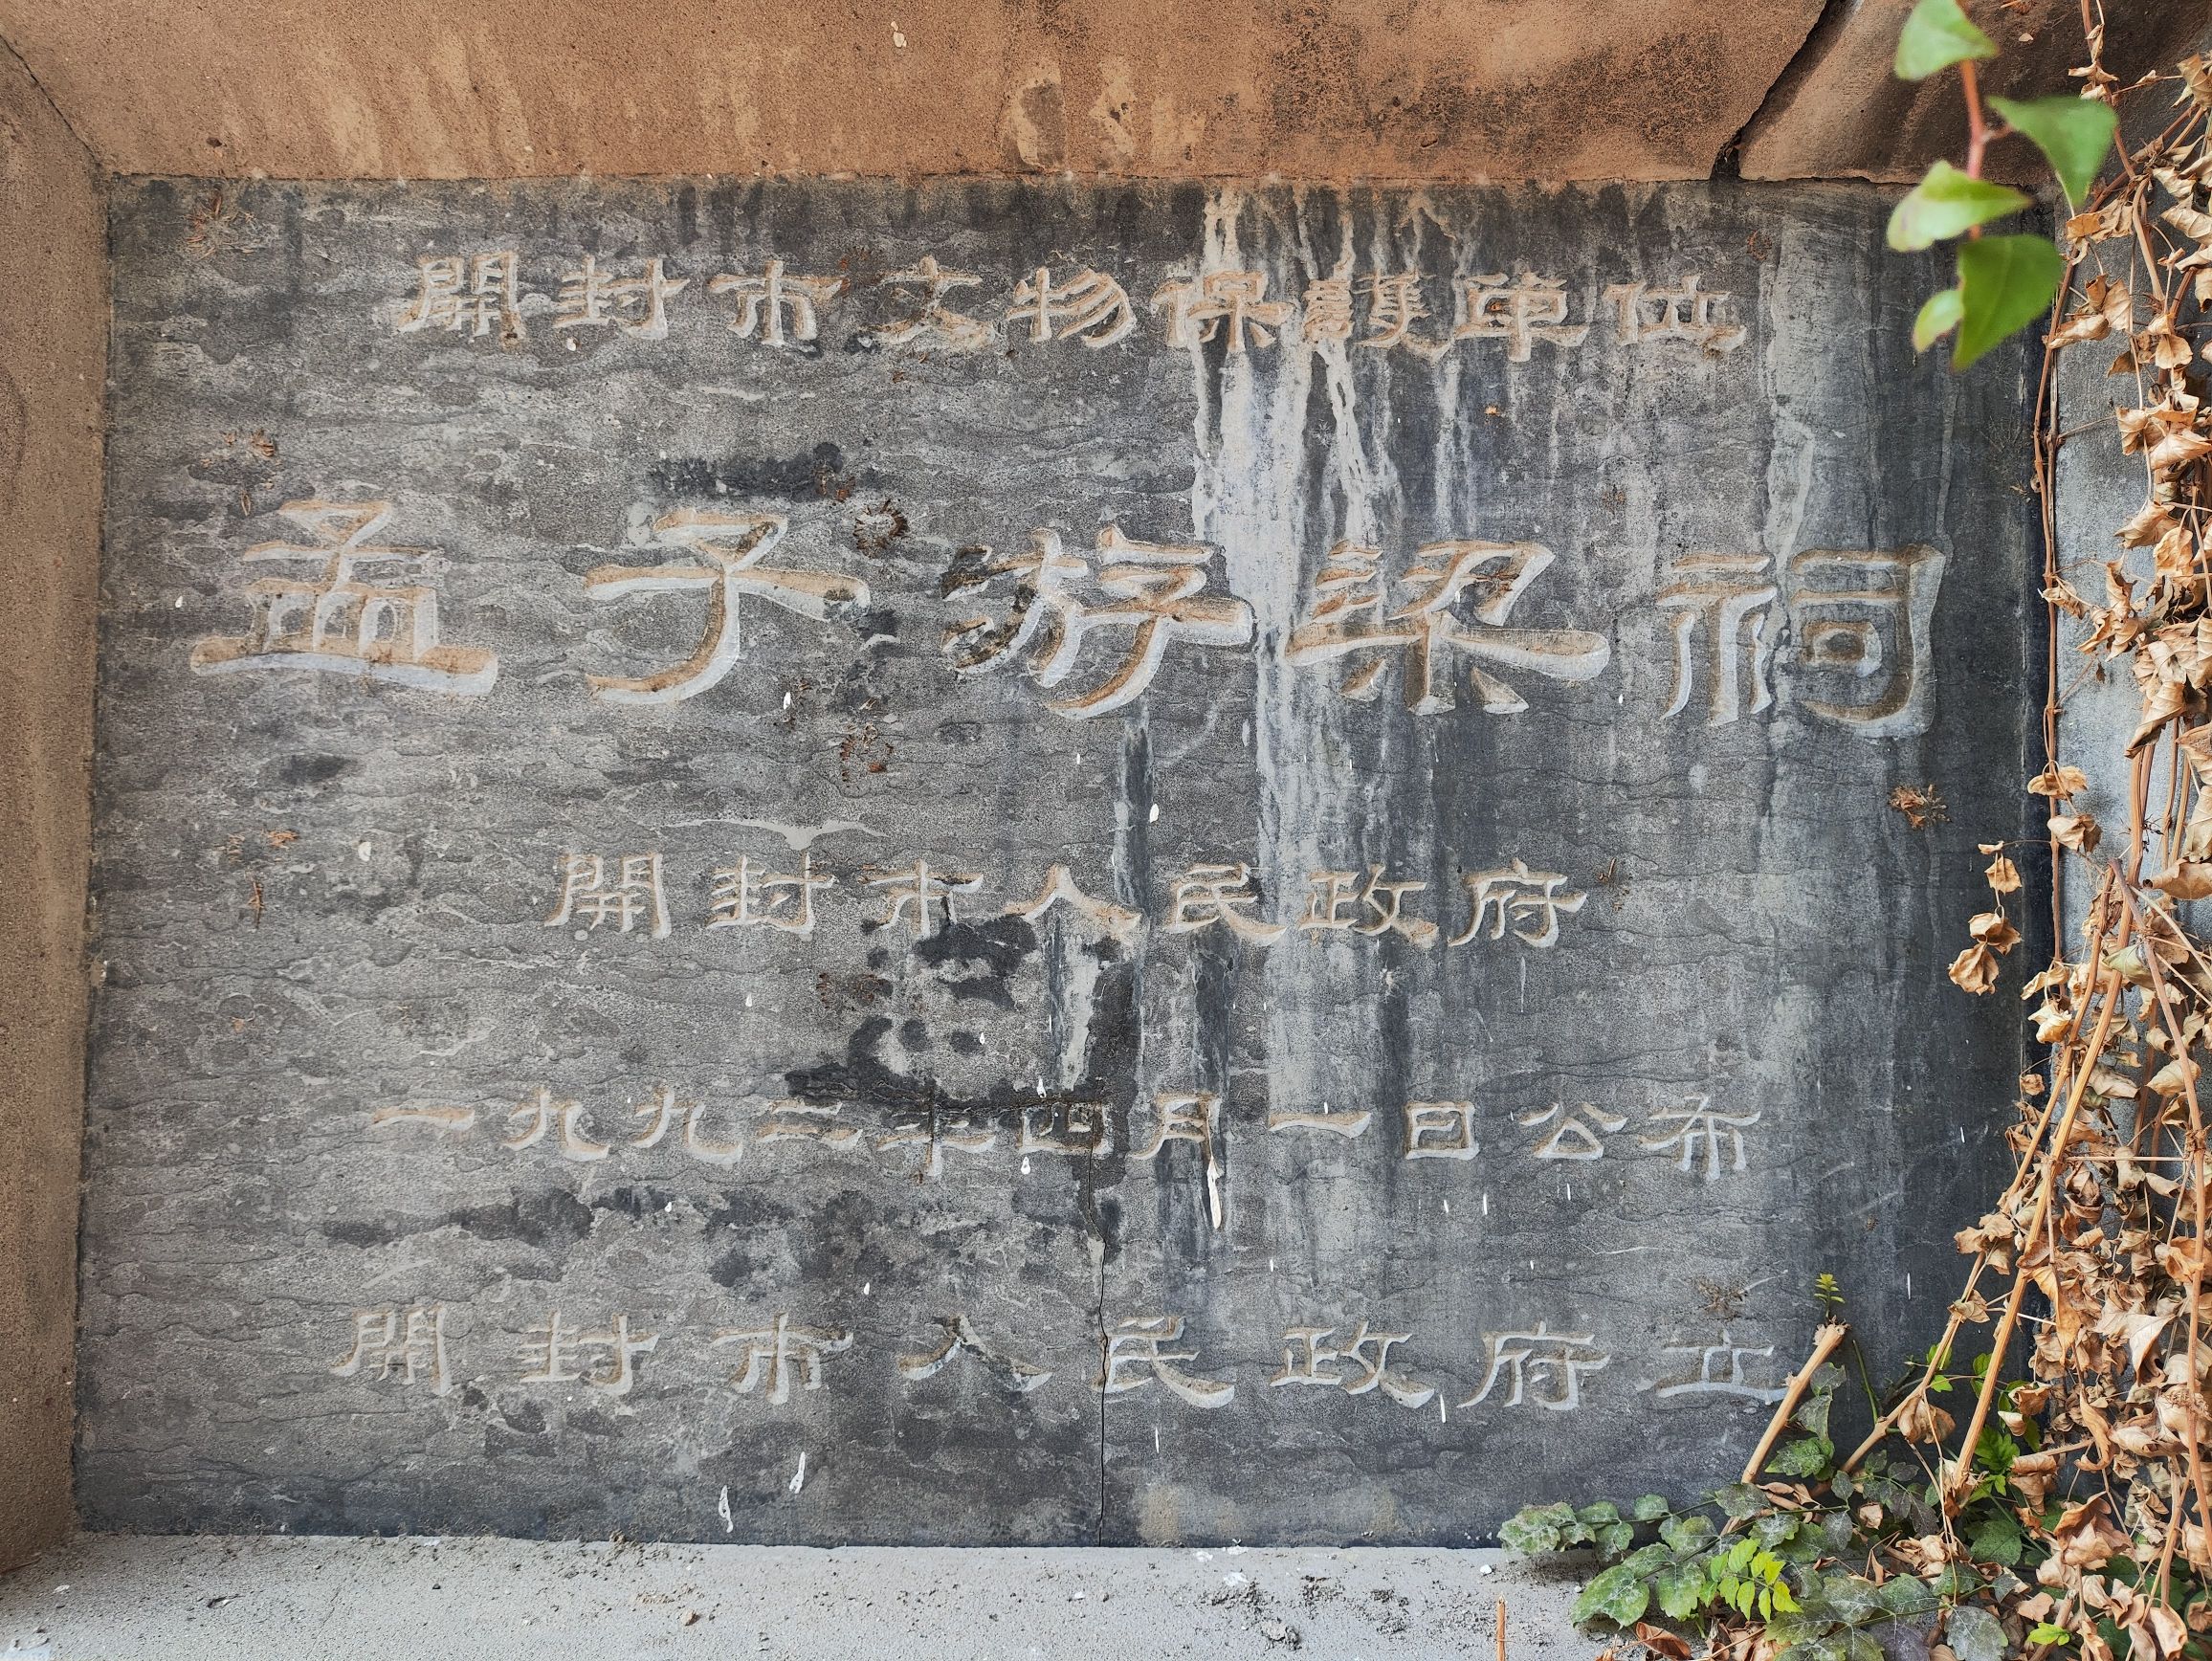 開封市文物保護單位
孟子游梁祠
開封市人民政府
一九九三年四月一日公布
開封市人民政府立